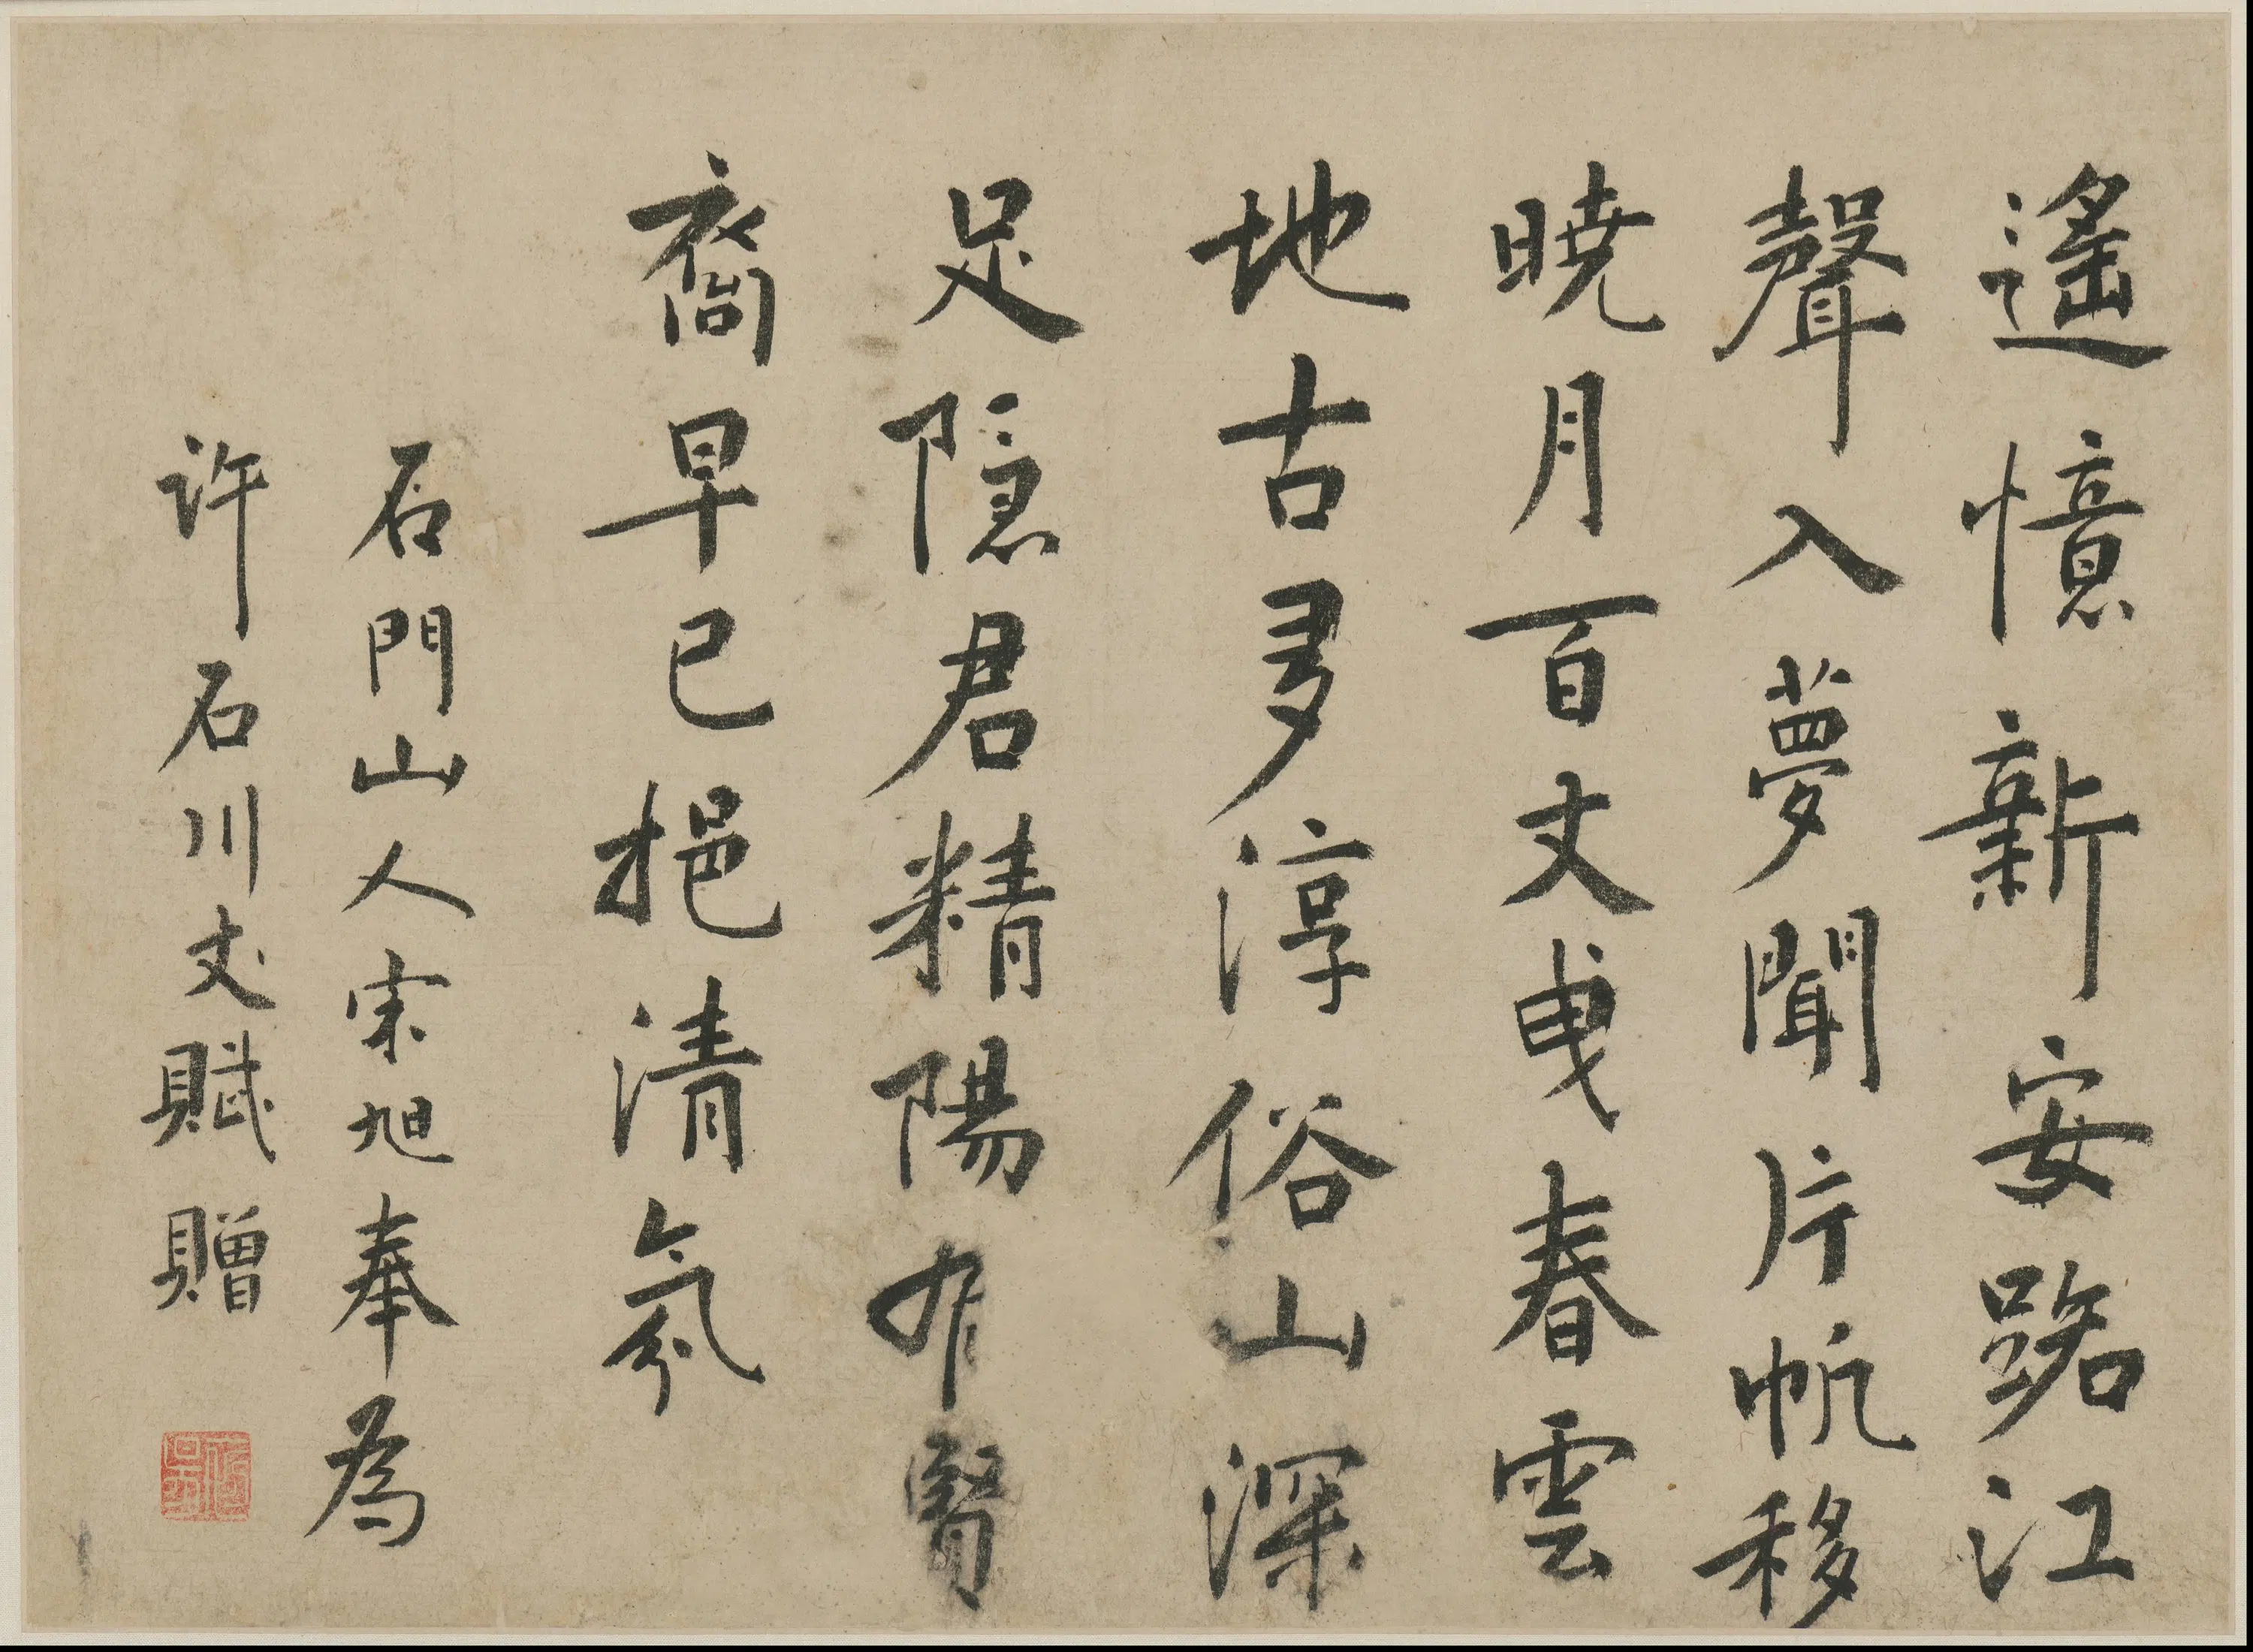 遙憶新安路江
聲入夢聞片帆移
曉月百丈曳春雲
地古多淳俗山深
足隱君精陽有賢
裔早已挹清氛
石門山人宋旭奉為
許石川丈賦贈